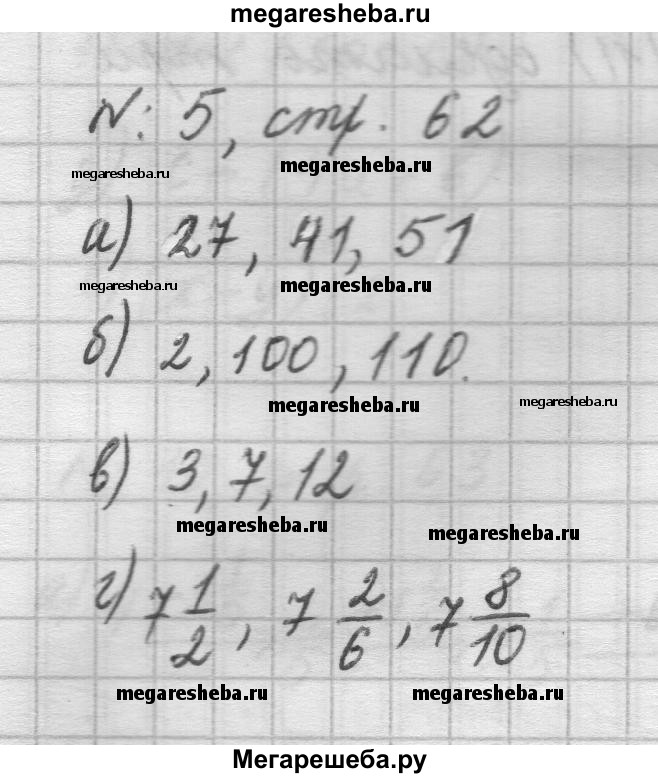 megaresheba.ru
№: 5, стр. 62
megaresheba.ru
megaresheba.ru
а) 27, 41, 51
megaresheba.ru
megaresheba.ru
б) 2, 100, 110.
megaresheba.ru
megaresheba.ru
в) 3, 7, 12
megaresheba.ru
megaresheba.ru
г) 7 1/2, 7 2/6, 7 8/10
megaresheba.ru
megaresheba.ru
Мегарешеба.ру